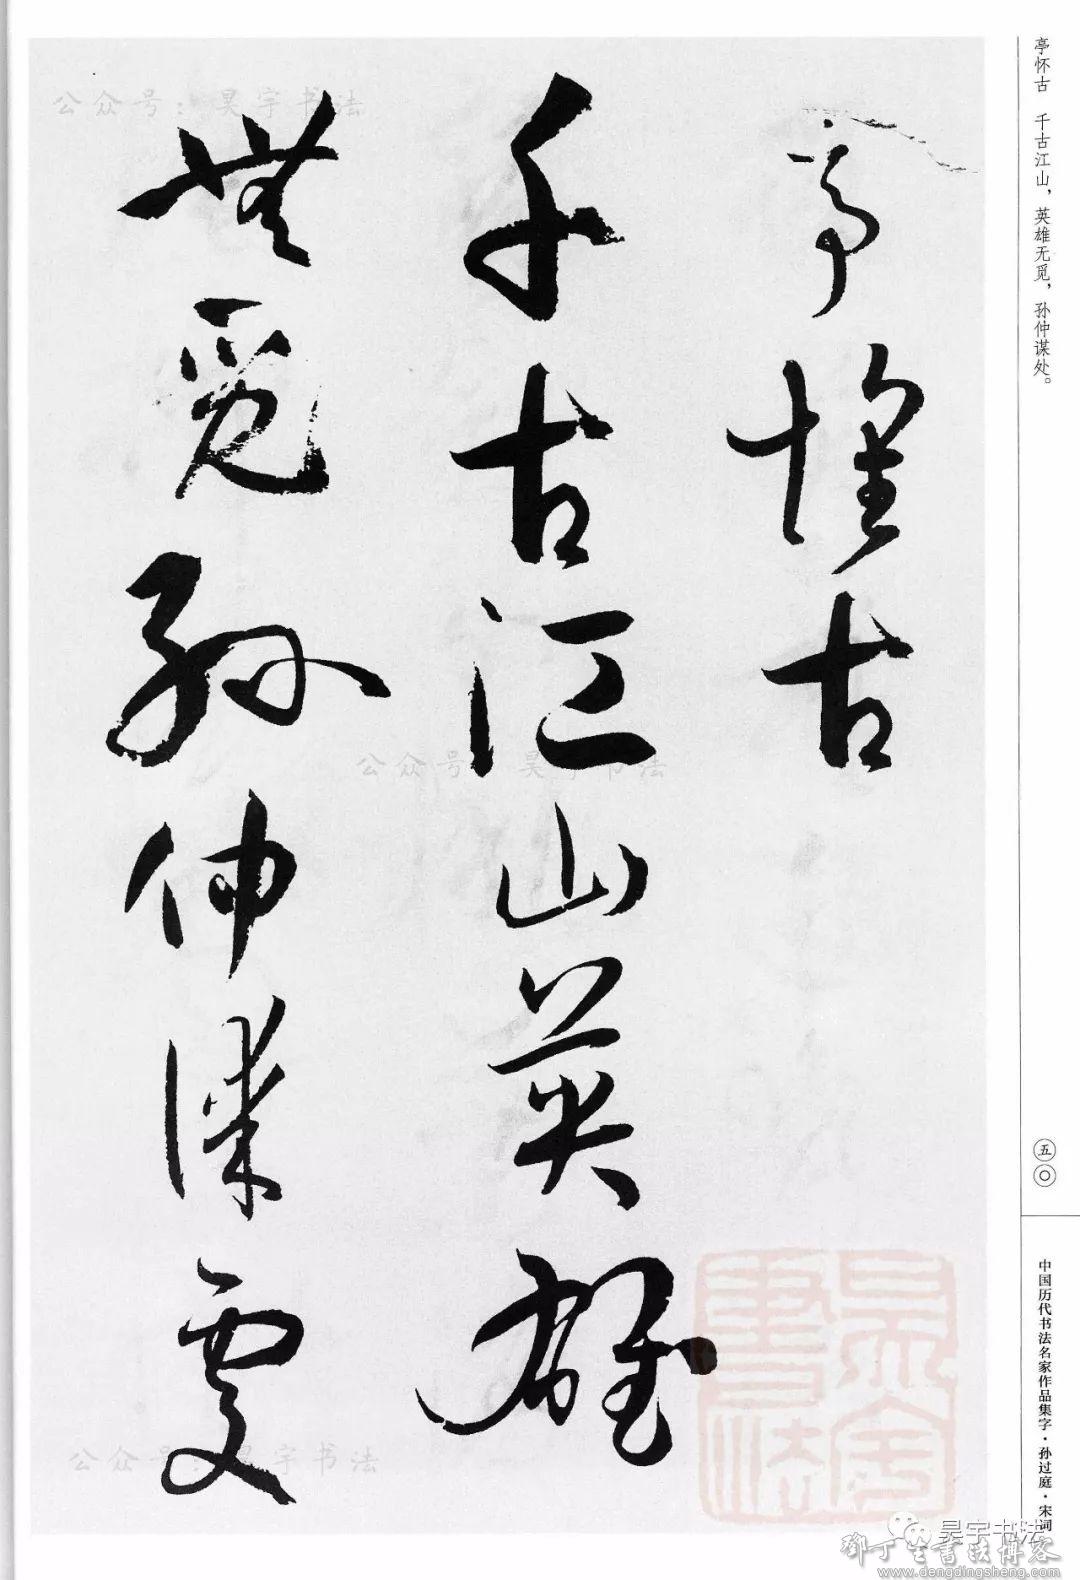 亭怀古 千古江山，英雄无觅，孙仲谋处。
亭懷古
千古江山英雄
無覓孫仲謀處
五〇
中国历代书法名家作品集字·孙过庭·宋词
公众号：昊宇书法
公众号 昊宇书法
公众号：昊宇书法
昊宇書法
昊宇书法
邓丁生書法博客
www.dengdingsheng.com